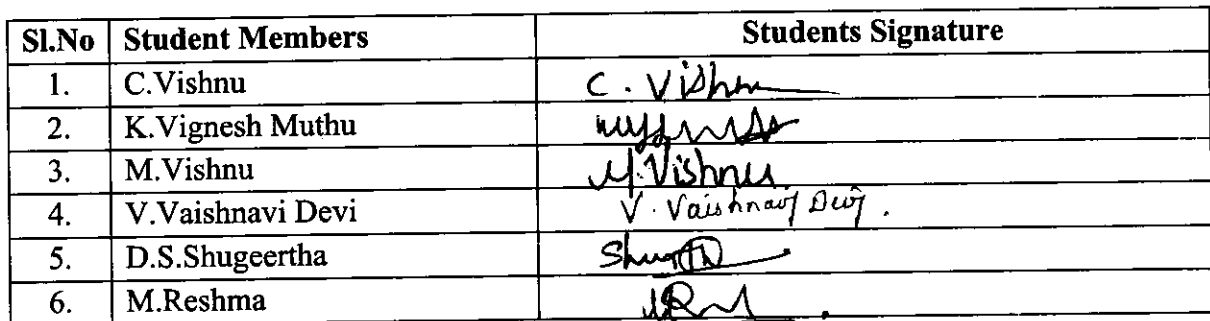 Sl.No Student Members Students Signature
1. C.Vishnu C. Vishnu
2. K.Vignesh Muthu
3. M.Vishnu M.Vishnu
4. V.Vaishnavi Devi V. Vaishnavi Devi.
5. D.S.Shugeertha
6. M.Reshma